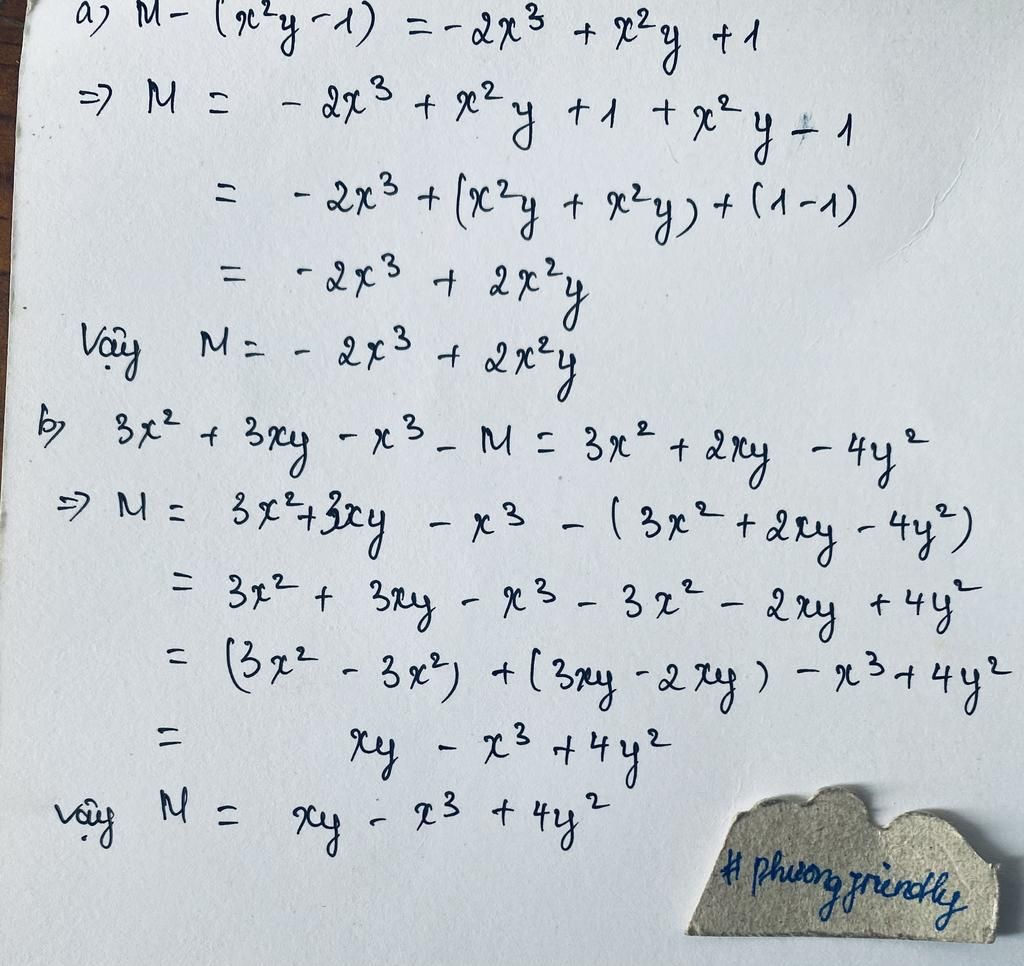 a) M - (x²y - 1) = - 2x³ + x²y + 1
=> M = - 2x³ + x²y + 1 + x²y - 1
= - 2x³ + (x²y + x²y) + (1 - 1)
= - 2x³ + 2x²y
Vậy M = - 2x³ + 2x²y
b) 3x² + 3xy - x³ - M = 3x² + 2xy - 4y²
=> M = 3x² + 3xy - x³ - (3x² + 2xy - 4y²)
= 3x² + 3xy - x³ - 3x² - 2xy + 4y²
= (3x² - 3x²) + (3xy - 2xy) - x³ + 4y²
= xy - x³ + 4y²
Vậy M = xy - x³ + 4y²
# phuongfriendly